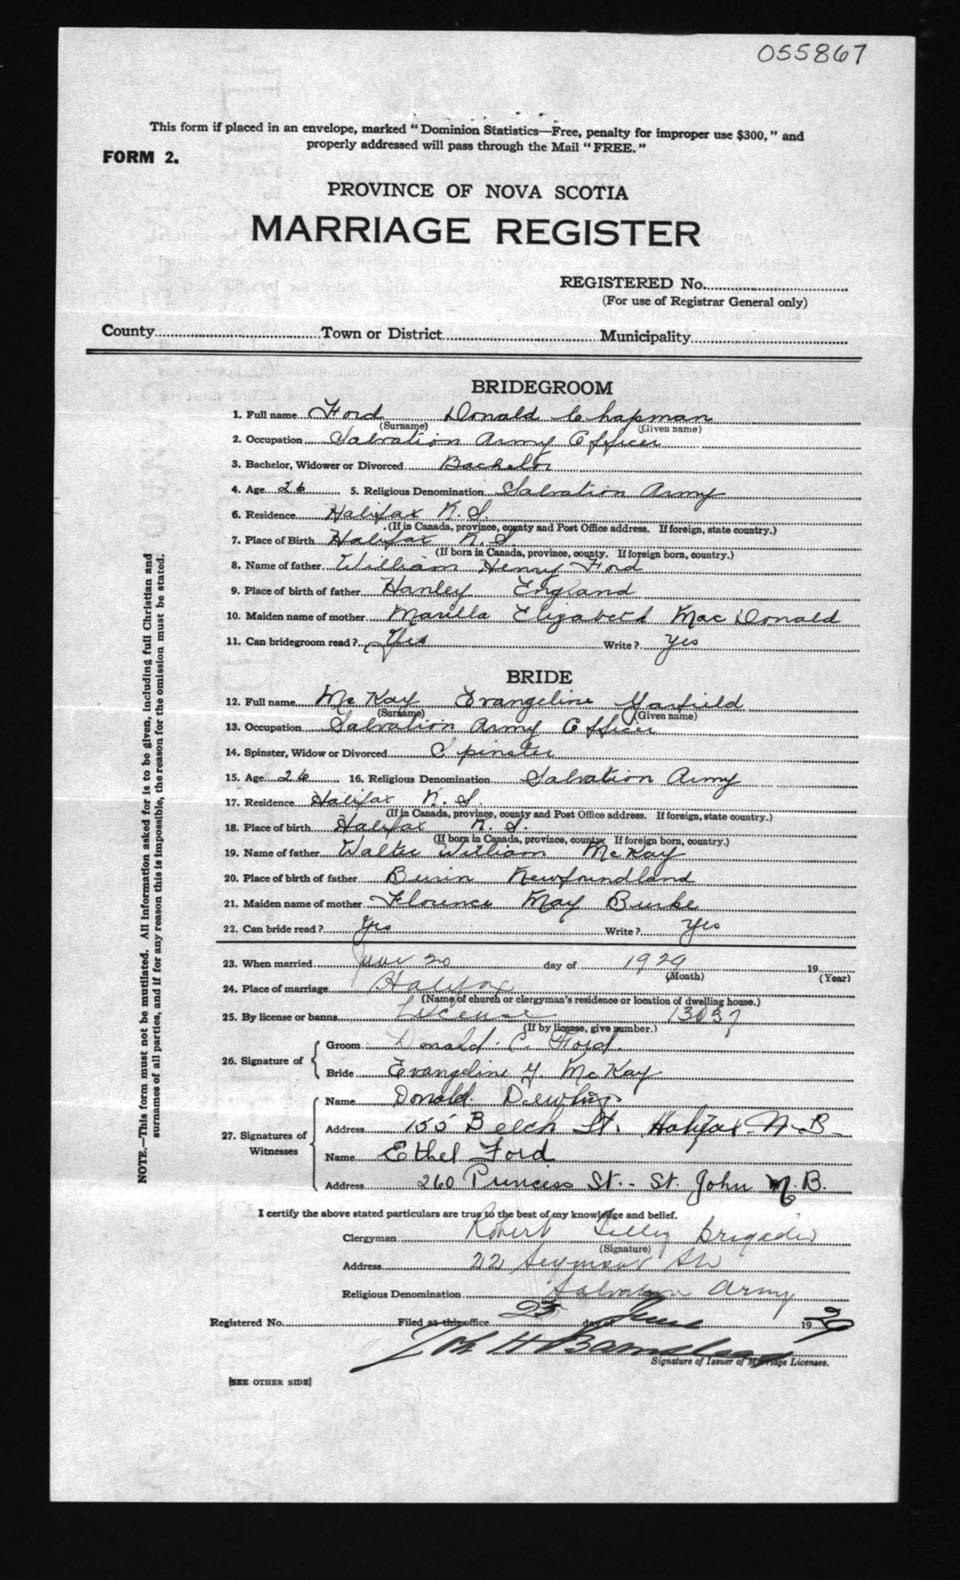 055867
This form if placed in an envelope, marked "Dominion Statistics—Free, penalty for improper use $300," and
properly addressed will pass through the Mail "FREE."
FORM 2.
PROVINCE OF NOVA SCOTIA
MARRIAGE REGISTER
REGISTERED No.
(For use of Registrar General only)
County Town or District Municipality
NOTE.—This form must not be mutilated. All information asked for is to be given, including full Christian and
surnames of all parties, and if for any reason this is impossible, the reason for the omission must be stated.
BRIDEGROOM
1. Full name Ford Donald Chapman
(Surname) (Given name)
2. Occupation Salvation Army Officer
3. Bachelor, Widower or Divorced Bachelor
4. Age 26 5. Religious Denomination Salvation Army
6. Residence Halifax N.S.
(If in Canada, province, county and Post Office address. If foreign, state country.)
7. Place of Birth Halifax N.S.
(If born in Canada, province, county. If foreign born, country.)
8. Name of father William Henry Ford
9. Place of birth of father Hanley England
10. Maiden name of mother Marilla Elizabeth MacDonald
11. Can bridegroom read? Yes Write? yes
BRIDE
12. Full name McKay Evangeline Garfield
(Surname) (Given name)
13. Occupation Salvation Army Officer
14. Spinster, Widow or Divorced Spinster
15. Age 26 16. Religious Denomination Salvation Army
17. Residence Halifax N.S.
(If in Canada, province, county and Post Office address. If foreign, state country.)
18. Place of birth Halifax N.S.
(If born in Canada, province, county. If foreign born, country.)
19. Name of father Walter William McKay
20. Place of birth of father Burin Newfoundland
21. Maiden name of mother Florence May Burke
22. Can bride read? Yes Write? yes
23. When married June 20 day of 1929 19
(Month) (Year)
24. Place of marriage Halifax
(Name of church or clergyman's residence or location of dwelling house.)
25. By license or banns License 13037
(If by license, give number.)
26. Signature of Groom Donald C. Ford
Bride Evangeline G. McKay
27. Signatures of Witnesses Name Donald
Address 155 Belch St. Halifax N.B.
Name Ethel Ford
Address 260 Princess St. - St. John N.B.
I certify the above stated particulars are true to the best of my knowledge and belief.
Clergyman Robert Brigadier
(Signature)
Address 22 Seymour St
Religious Denomination Salvation Army
Registered No. Filed at this office 25 day of June 1929
Signature of Issuer of Marriage Licenses.
[SEE OTHER SIDE]